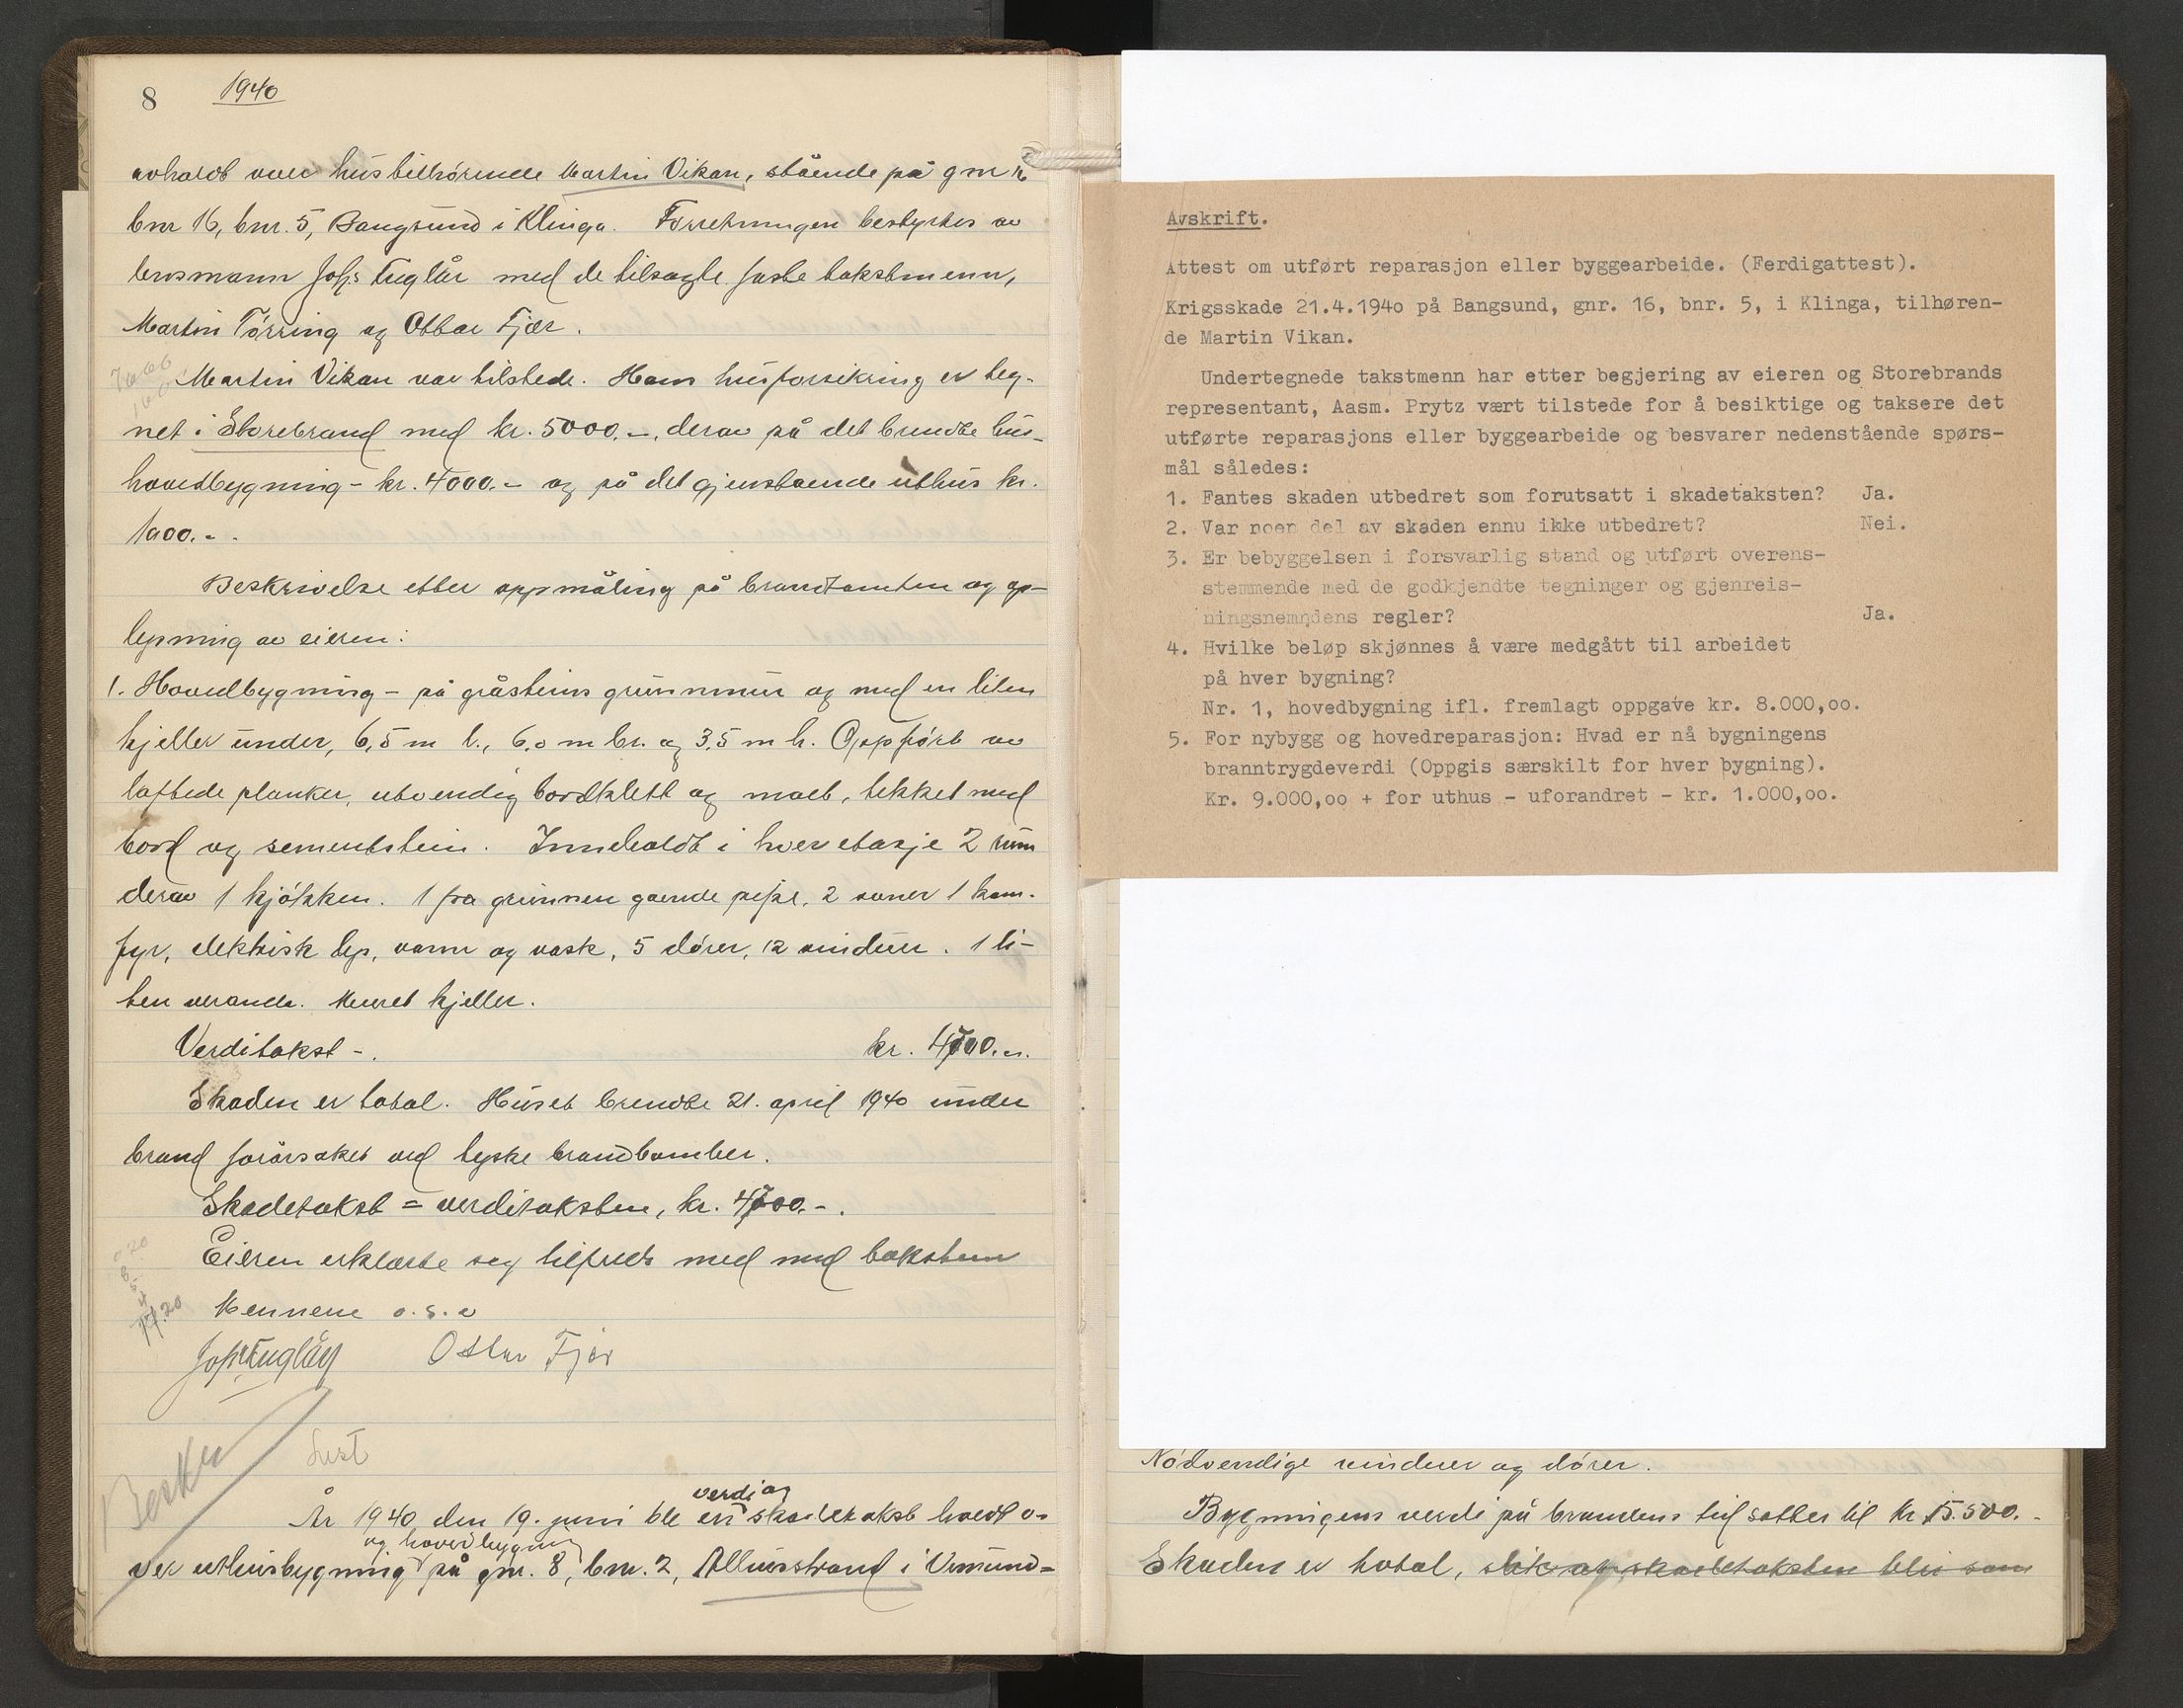 8 1940
avholdt over hus tilhørende Martin Vikan, stående på gnr 16
bnr 16, bnr. 5, Bangsund i Klinga. Forretningen bestyrtes av
lensmann Johs Fuglår med de tilsagte faste takstmenn,
Martin Tørring og Ottar Fjær.
Martin Vikan var tilstede. Hans husforsikring er teg-
net i Storebrand med kr. 5000.-, derav på det brendte hus-
hovedbygning - kr. 4000.- og på det gjenstående uthus kr.
1000.-.
Beskrivelse etter oppmåling på brandtomten og op-
lysning av eieren:
1. Hovedbygning - på gråsteins grunnmur og med en liten
kjeller under, 6,5 m l., 6,0 m br. og 3,5 m h. Oppført av
laftede planker, utvendig bordklett og malt, tekket med
bord og sementstein. Inneholdt i hver etasje 2 rum
derav 1 kjøkken. 1 fra grunnen gående pipe, 2 ovner 1 kom-
fyr, elektrisk lys, vann og vask, 5 dører, 12 vinduer. 1 li-
ten veranda. Muret kjeller.
Verditakst -. kr. 4700.-.
Skaden er total. Huset brendte 21. april 1940 under
brand forårsaket ved tyske brandbomber.
Skadetakst = verditaksten, kr. 4700.-.
Eieren erklærte seg tilfreds med med takstem
Mennene o.s.v
Johs Fuglår Ottar Fjær
Lest
verdi og
År 1940 den 19. juni ble en skadetakst holdt o-
og hovedbygning
ver uthusbygning på gnr. 8, bnr. 2, Alhusstrand i Vemund-
Avskrift.
Attest om utført reparasjon eller byggearbeide. (Ferdigattest).
Krigsskade 21.4.1940 på Bangsund, gnr. 16, bnr. 5, i Klinga, tilhøren-
de Martin Vikan.
Undertegnede takstmenn har etter begjering av eieren og Storebrands
representant, Aasm. Prytz vært tilstede for å besiktige og taksere det
utførte reparasjons eller byggearbeide og besvarer nedenstående spørs-
mål således:
1. Fantes skaden utbedret som forutsatt i skadetaksten? Ja.
2. Var noen del av skaden ennu ikke utbedret? Nei.
3. Er bebyggelsen i forsvarlig stand og utført overens-
stemmende med de godkjendte tegninger og gjenreis-
ningsnemndens regler? Ja.
4. Hvilke beløp skjønnes å være medgått til arbeidet
på hver bygning?
Nr. 1, hovedbygning ifl. fremlagt oppgave kr. 8.000,oo.
5. For nybygg og hovedreparasjon: Hvad er nå bygningens
branntrygdeverdi (Oppgis særskilt for hver bygning).
Kr. 9.000,oo + for uthus - uforandret - kr. 1.000,oo.
Nødvendige vinduer og dører.
Bygningens verdi på brandens tid settes til kr. 15.500.-
Skaden er total, slik at skadetaksten blir som